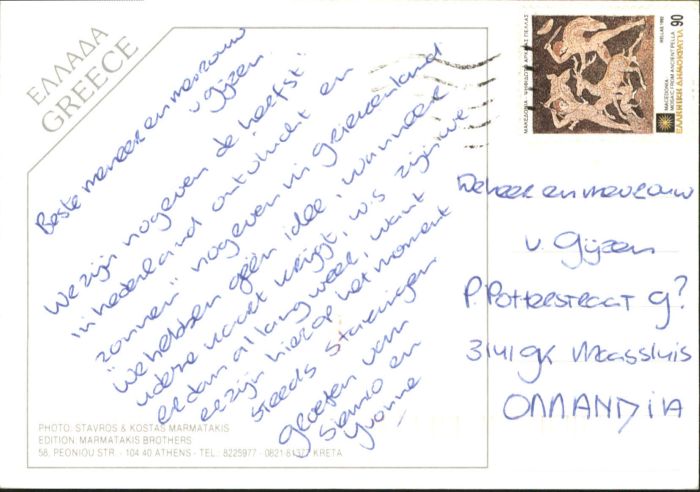 ΕΛΛΑΔΑ
GREECE
Beste meneer en mevrouw
v Gijzen.
We zijn nog even de herfst
in nederland ontvlucht en
"zonnen" nog even in Griekenland
We hebben géén idee, wanneer
u deze kaart krijgt, w.s zijn we
er dan al lang weer, want
er zijn hier op het moment
steeds stakingen
groeten van
Siemko en
Yvonne
PHOTO: STAVROS & KOSTAS MARMATAKIS
EDITION: MARMATAKIS BROTHERS
58, PEONIOU STR. - 104 40 ATHENS - TEL.: 8225977 - 0821-81377 KRETA
ΜΑΚΕΔΟΝΙΑ - ΨΗΦΙΔΩΤΟ ΑΡΧΑΙΑΣ ΠΕΛΛΑΣ
HELLAS 1992
90
MACEDONIA
MOSAIC FROM ANCIENT PELLA
ΕΛΛΗΝΙΚΗ ΔΗΜΟΚΡΑΤΙΑ
De heer en mevrouw
v. Gijzen
P. Potterstraat 9?
3141 GK Maassluis
ΟΛΛΑΝΔΙΑ